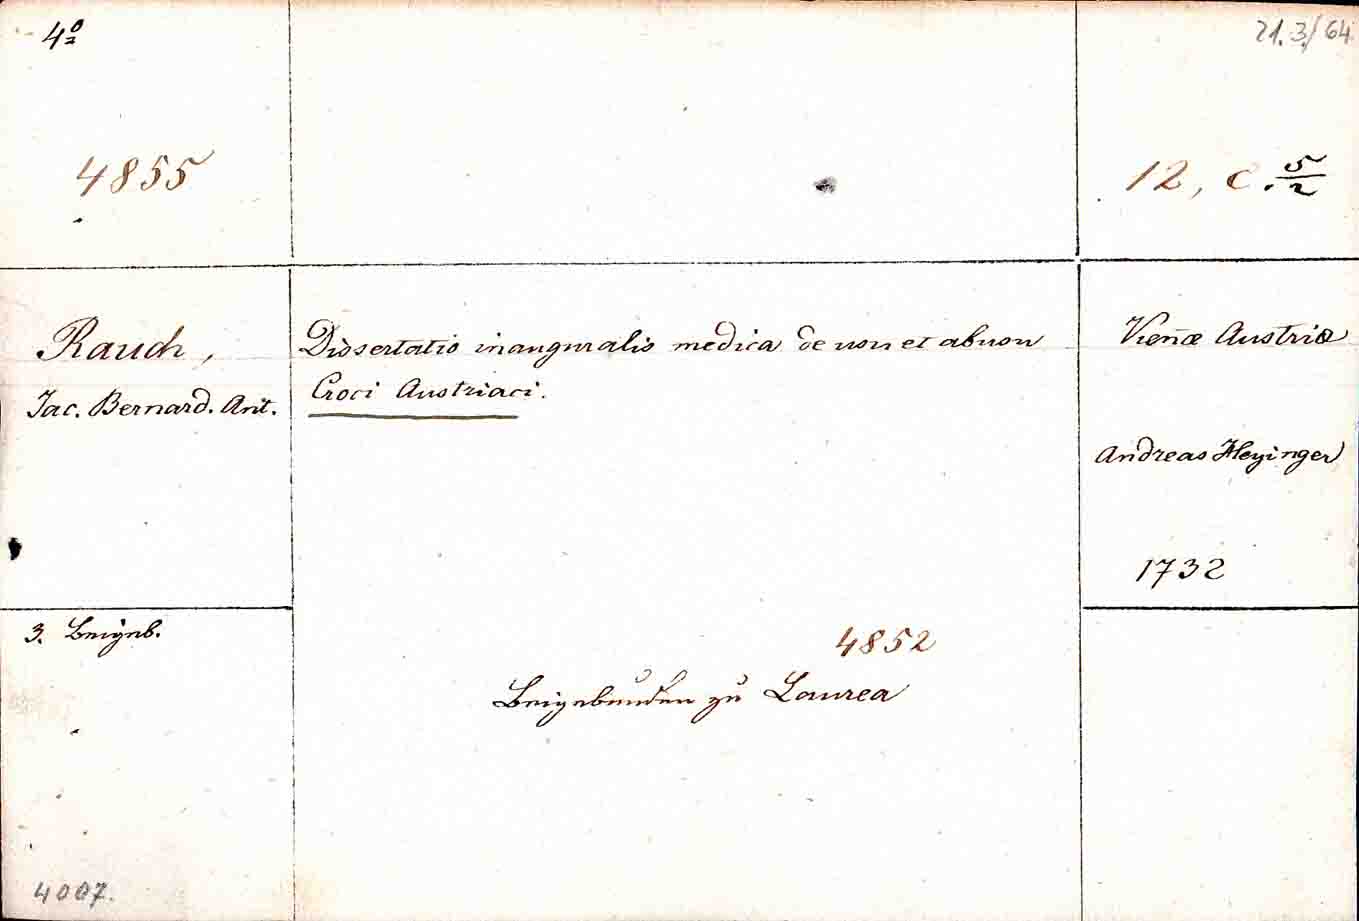 4º
21.3./64
4855
12, C. 5/2
Rauch,
Jac. Bernard. Ant.
Dissertatio inauguralis medica de usu et abusu
Croci Austriaci.
Vieñæ Austriæ
Andreas Heyinger
1732
3. Beigeb.
4852
Beigebunden zu Laurea
4007.